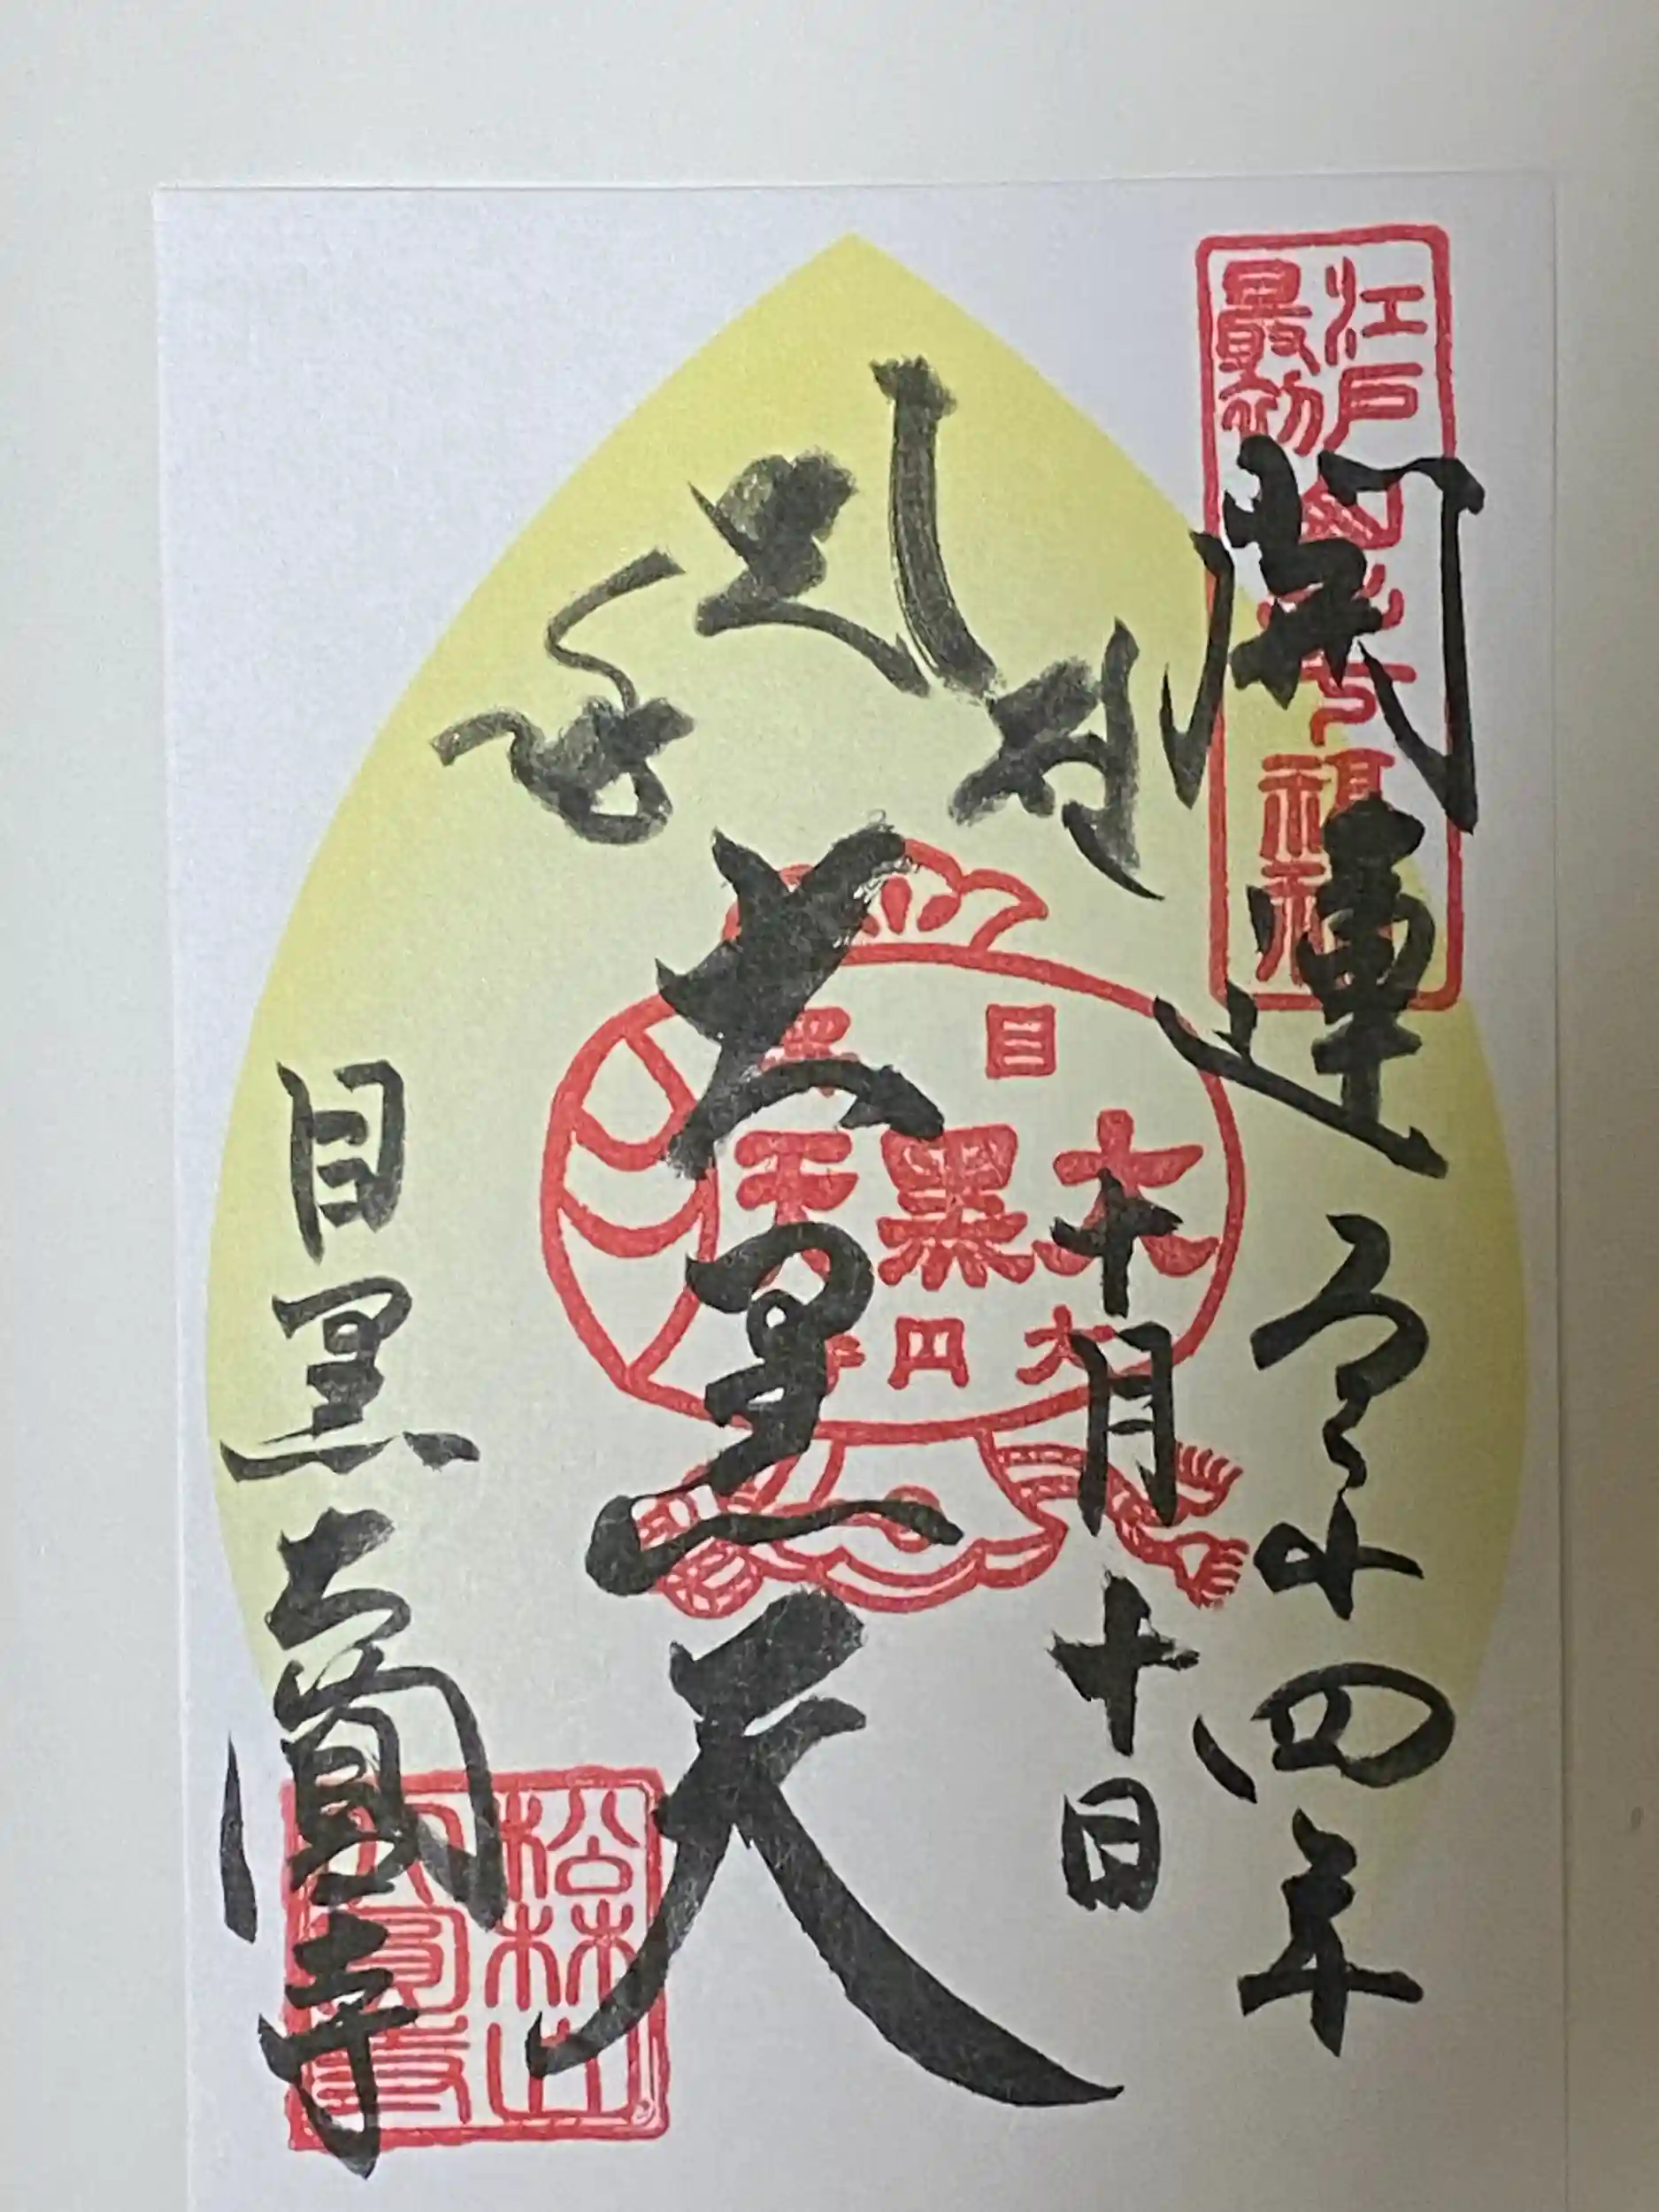 江戸
最初
山手七福神
開運
令和四年
十月十日
大黒天
目黒
大黒天
大円寺
目黒大圓寺
松林山
大圓寺